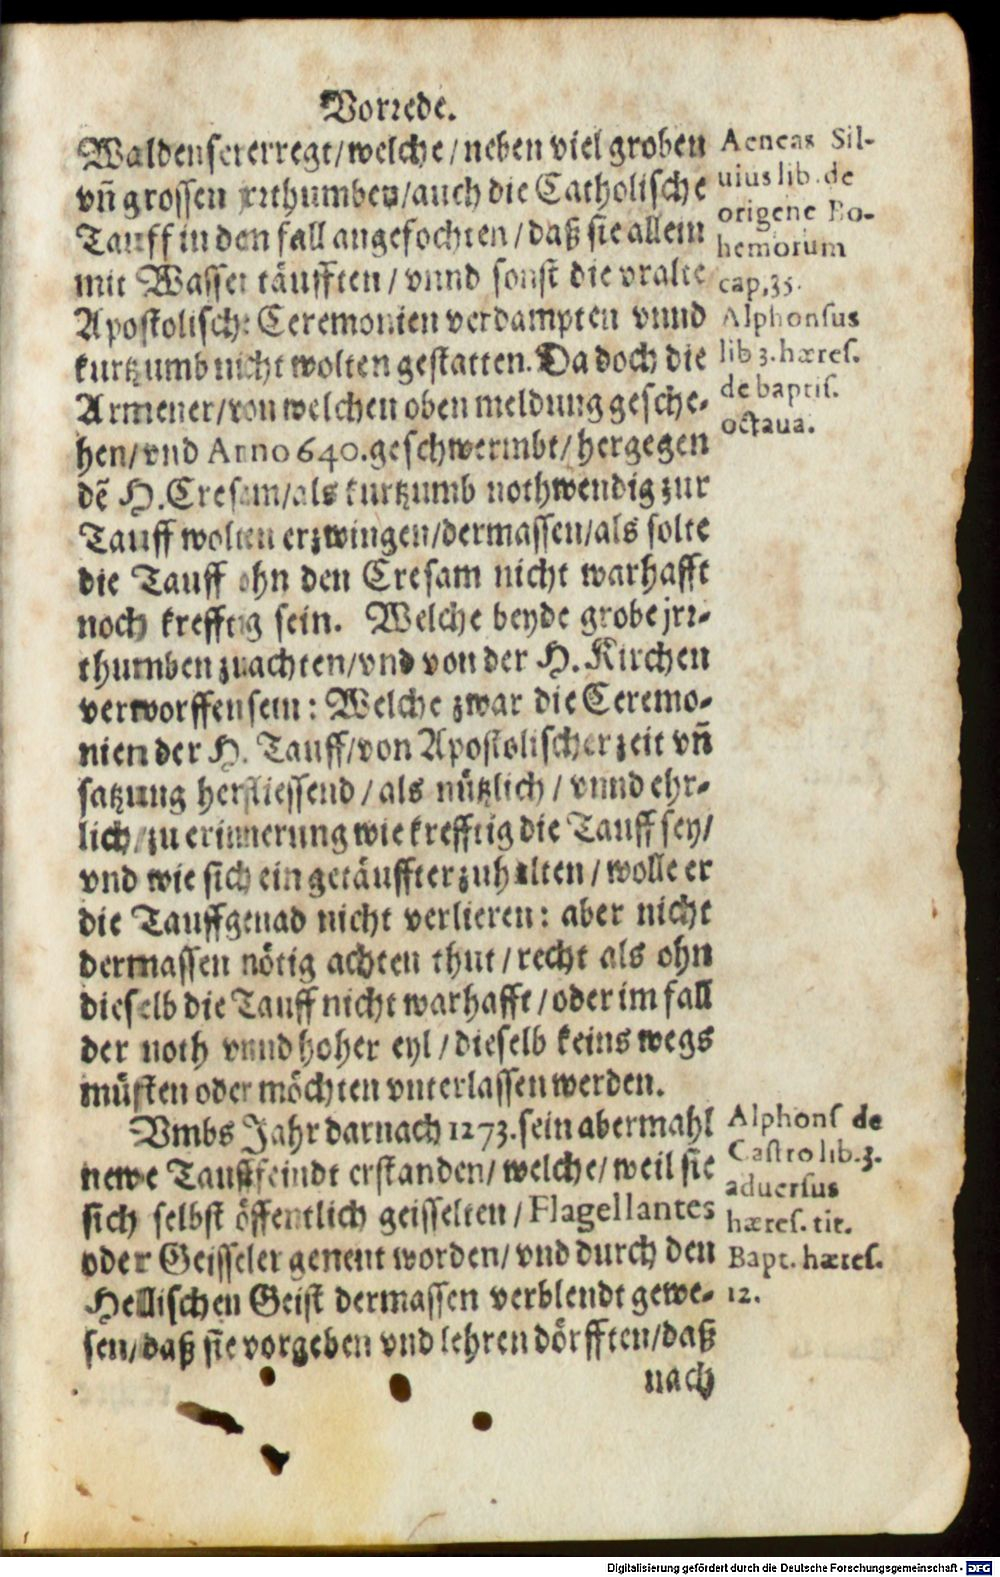 Vorrede.
Waldenser erregt/welche/neben viel groben
vñ grossen jrrthumben/auch die Catholische
Tauff in den fall angefochten/daß sie allein
mit Wasser täufften/vnnd sonst die vralte
Apostolische Ceremonien verdampten vnnd
kurtzumb nicht wolten gestatten. Da doch die
Armener/von welchen oben meldung gesche-
hen/vnd Anno 640. geschwermbt/hergegen
dẽ H. Cresam/als kurtzumb nothwendig zur
Tauff wolten erzwingen/dermassen/als solte
die Tauff ohn den Cresam nicht warhafft
noch krefftig sein. Welche beyde grobe jrr-
thumben zuachten/vnd von der H. Kirchen
verworffen sein: Welche zwar die Ceremo-
nien der H. Tauff/von Apostolischer zeit vñ
satzung herfliessend/als nützlich/vnnd ehr-
lich/zu erinnerung wie krefftig die Tauff sey/
vnd wie sich ein getäuffter zuhalten/wolle er
die Tauffgenad nicht verlieren: aber nicht
dermassen nötig achten thut/recht als ohn
dieselb die Tauff nicht warhafft/oder im fall
der noth vnnd hoher eyl/dieselb keins wegs
müsten oder möchten vnterlassen werden.
Vmbs Jahr darnach 1273. sein abermahl
newe Tauffeindt erstanden/welche/weil sie
sich selbst öffentlich geisselten/Flagellantes
oder Geisseler genent worden/vnd durch den
Hellischen Geist dermassen verblendt gewe-
sen/daß sie vorgeben vnd lehren dörfften/daß
nach
Aeneas Sil-
uius lib. de
origene Bo-
hemorum
cap, 35.
Alphonsus
lib 3. hæres.
de baptis.
octaua.
Alphons de
Castro lib. 3.
aduersus
hæres. tit.
Bapt. hæres.
12.
Digitalisierung gefördert durch die Deutsche Forschungsgemeinschaft - DFG